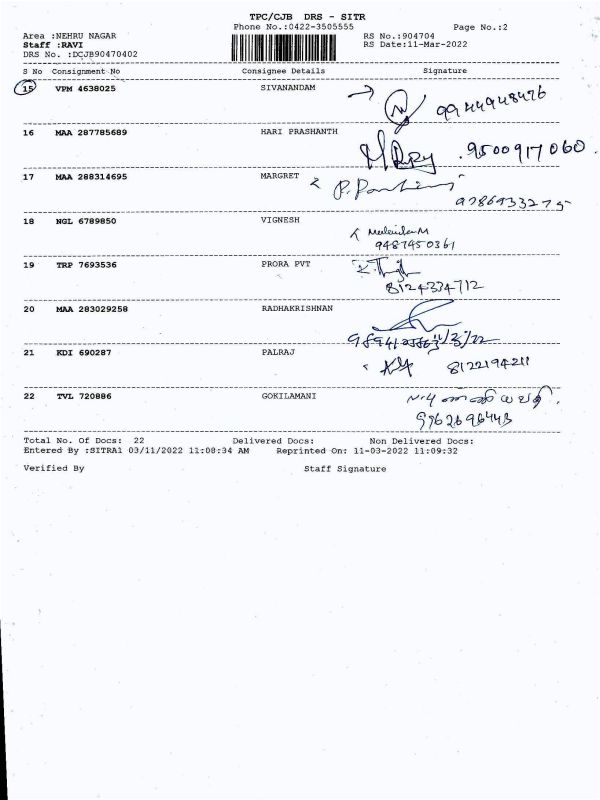 TPC/CJB DRS - SITR
Phone No.:0422-3505555 Page No.:2
Area :NEHRU NAGAR RS No.:904704
Staff :RAVI RS Date:11-Mar-2022
DRS No. :DCJB90470402
S No Consignment No Consignee Details Signature
15 VPM 4638025 SIVANANDAM
9944948476
16 MAA 287785689 HARI PRASHANTH
9500917060
17 MAA 288314695 MARGRET
9786933275
18 NGL 6789850 VIGNESH
9487450361
19 TRP 7693536 PRORA PVT
8124334712
20 MAA 283029258 RADHAKRISHNAN
21 KDI 690287 PALRAJ 8122194211
22 TVL 720886 GOKILAMANI
Total No. Of Docs: 22 Delivered Docs: Non Delivered Docs:
Entered By :SITRA1 03/11/2022 11:08:34 AM Reprinted On: 11-03-2022 11:09:32
Verified By Staff Signature